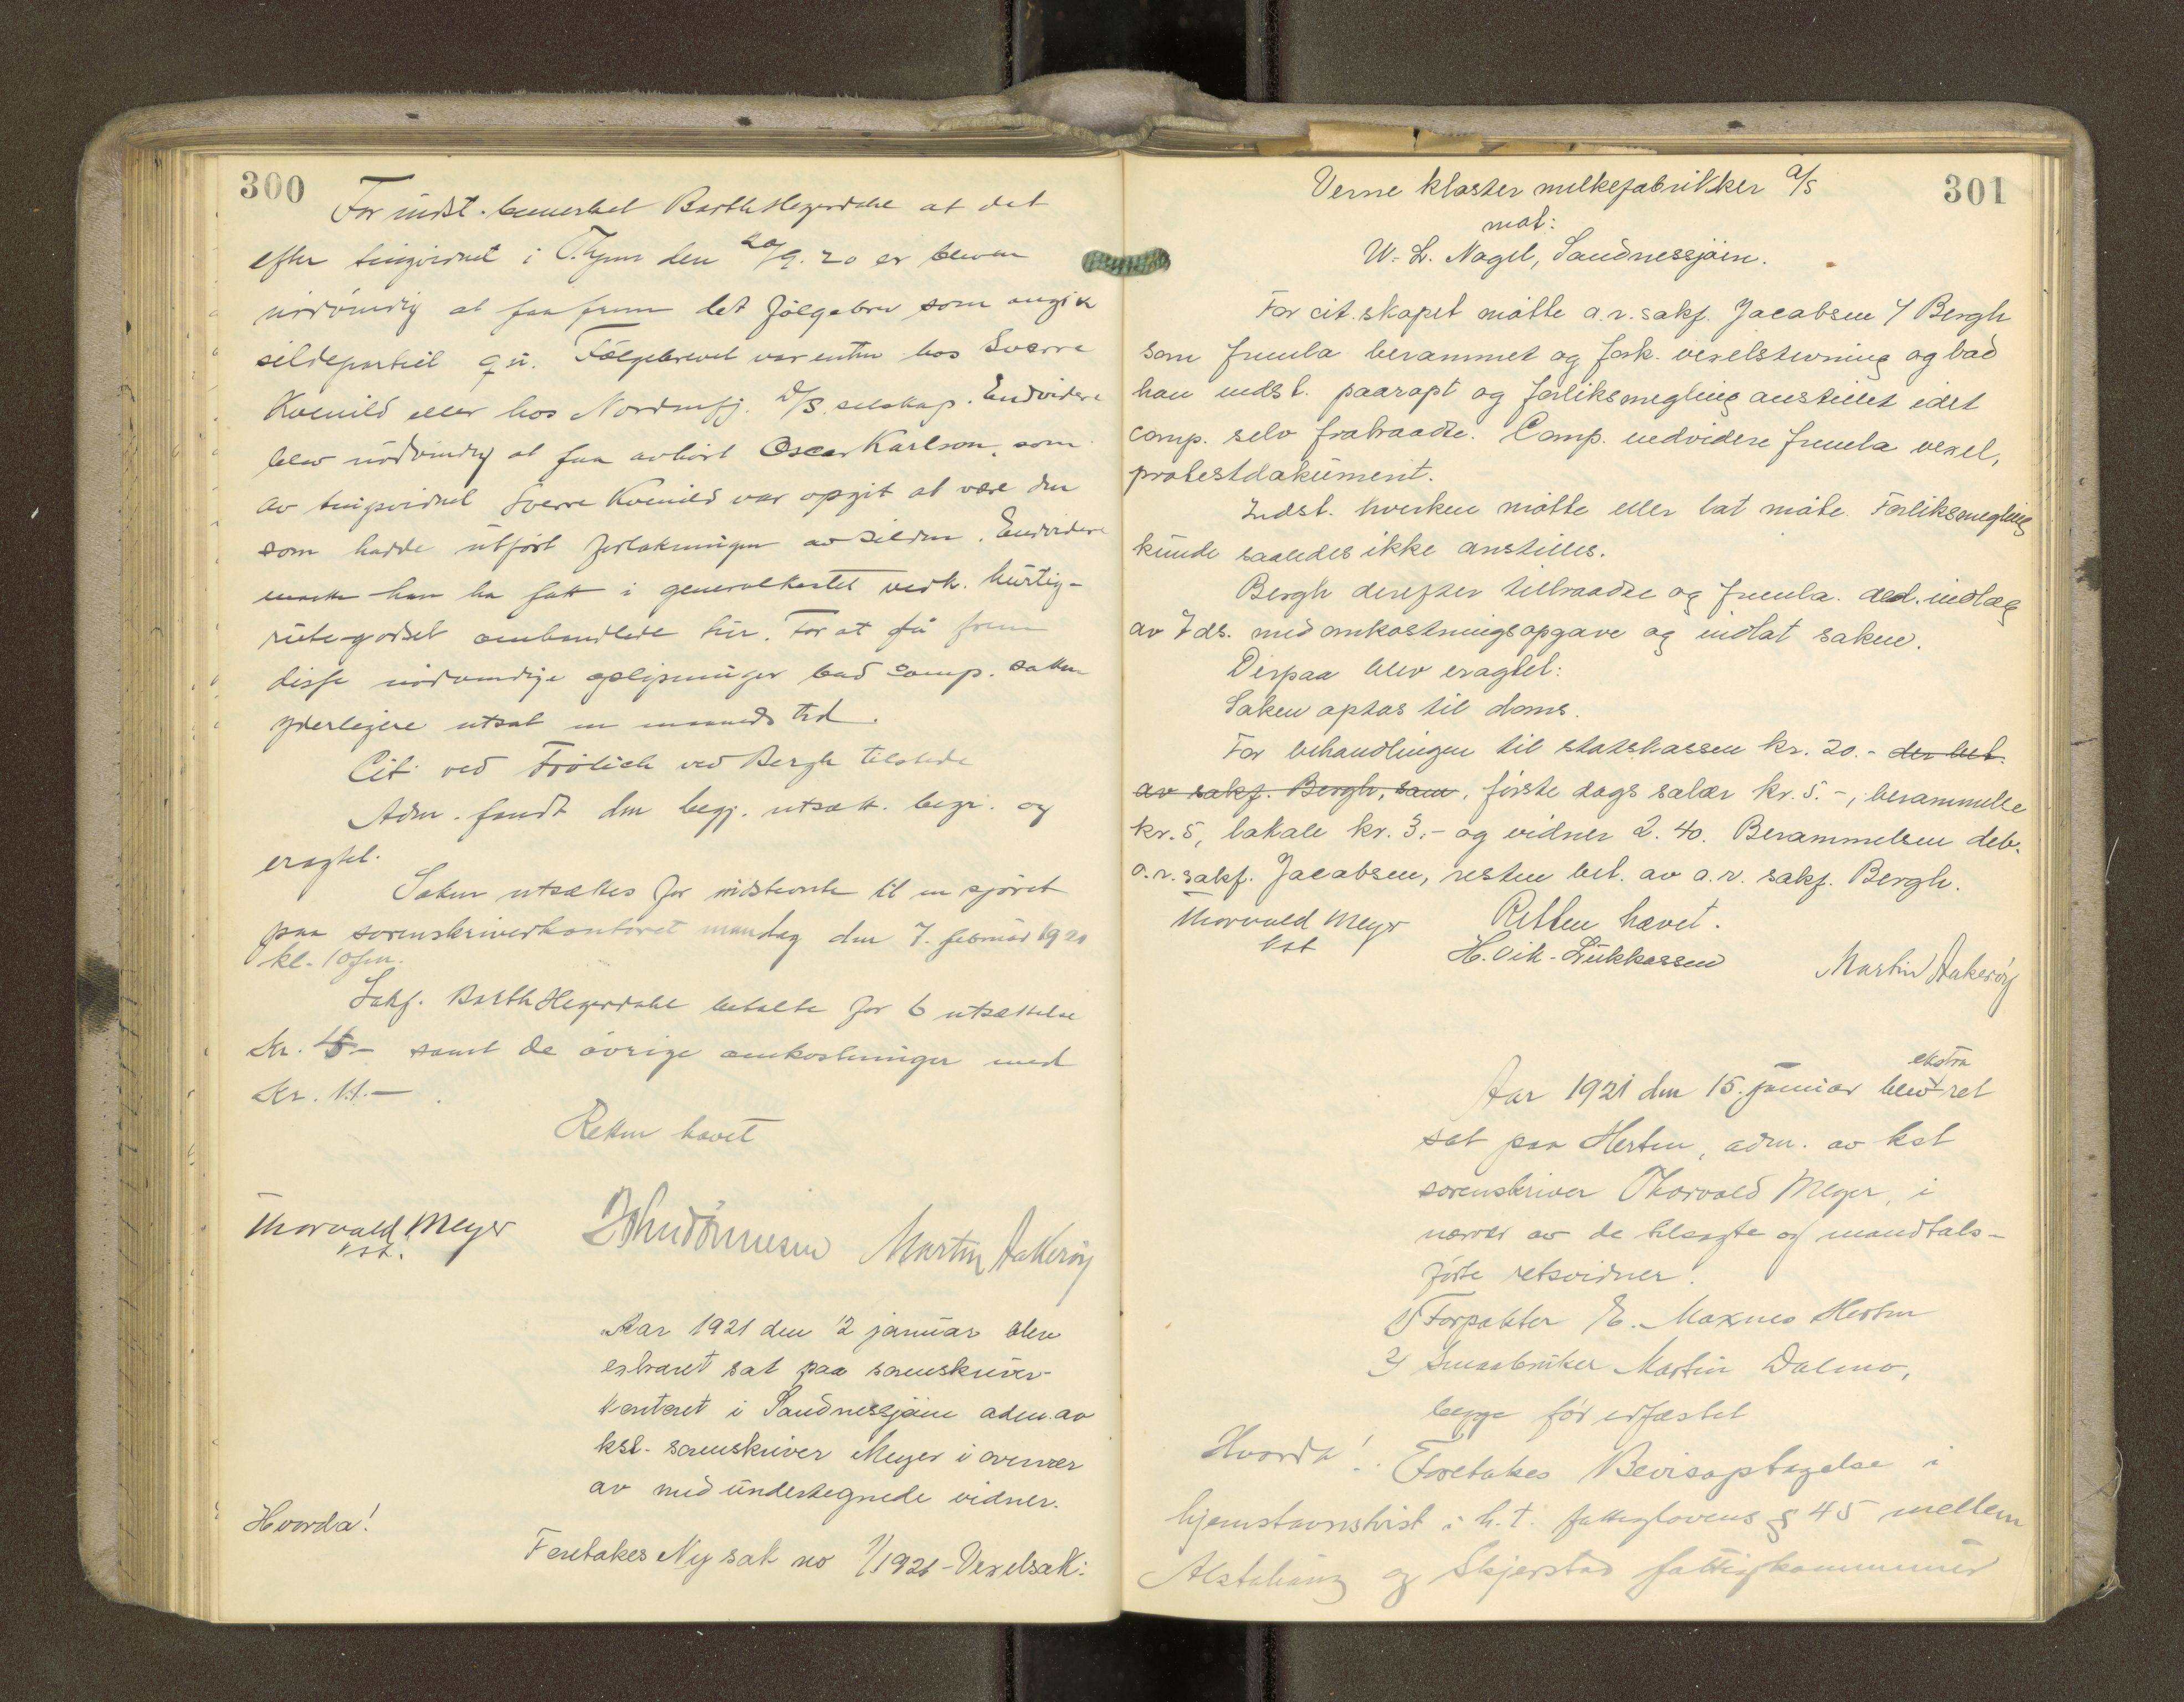 300
For indst. bemerket Barth Hegerdahl at det
efter tingvidnet i T.hjem den 20/9. 20 er blevet
nødvendig at faa frem det følgebrev som angik
sildepartiet qu. Følgebrevet var enten hos Sverre
Kvenild eller hos Nordenfj. D/S. selskap. Endvidere
blev nødvendig at faa avhørt Oscar Karlson, som
av tingvidnet Sverre Kvenild var opgit at være den
som hadde utført forlakningen av silden. Endvidere
maatte han ha fatt i generalkartet vedk. hurtig-
rutegodset ombandlede tur. For at få frem
disse nødvendige oplysninger bad comp. saken
yderligere utsat en maaneds tid.
Cit. ved Frölich ved Bergh tilstede
Adm. fandt den begj. utsætt. begr. og
eragtet.
Saken utsættes for indstevnte til en sjøret
paa sorenskriverkontoret mandag den 7. februar 1921
kl. 10 fm.
Sakf. Barth Hegerdahl betalte for 6 utsættelse
kr. 45.- samt de øvrige omkostninger med
kr. 11.-
Retten hævet
Thorvald Meyer
kst.
Martin Aakerøy
Aar 1921 den 12 januar blev
extraret sat paa sorenskriver-
kontoret i Sandnessjøen adm. av
kst. sorenskriver Meyer i overvær
av medundertegnede vidner.
Hvorda!
Foretakes Ny sak no 1/1921 - Vexelsak:
301
Verne kloster melkefabrikker a/s
mot:
W. L. Nagel, Sandnessjøen.
For cit. skapet møtte o.r. sakf. Jacobsen v/ Bergh
som fremla berammet og fork. vexelstevning og bad
han indst. paaropt og forliksmegling anstillet idet
comp. selv fratraadte. Comp. endvidere fremla vexel,
protestdokument.
Indst. hverken møtte eller lot møte. Forliksmegling
kunde saaledes ikke anstilles.
Bergh derefter tiltraadte og fremla ded. indlæg
av I ds. med omkostningsopgave og indlot saken.
Derpaa blev eragtet:
Saken optas til doms.
For behandlingen til statskassen kr. 20.- der bet.
av sakf. Bergh, sam, første dags salær kr. 5.-, berammelse
kr. 5, lokale kr. 3.- og vidner 2.40. Berammelsen deb.
o.r. sakf. Jacobsen, resten bet. av o.r. sakf. Bergh.
Retten hævet.
Thorvald Meyer
kst
H. Vik-Lukkassen
Martin Aakerøy
Aar 1921 den 15. januar blev ekstra ret
sat paa Herten, adm. av kst
sorenskriver Thorvald Meyer, i
nærvær av de tilsagte og mandtals-
førte retsvidner.
1) Forpakter E. Moxnes Herten
2) Smaabruker Martin Dalmo,
begge før edfæstet
Hvorda!
Foretakes Bevisoptagelse i
hjemstavnstvist i h.t. fattiglovens § 45 mellem
Alstahaug og Skjerstad fattigkommuner